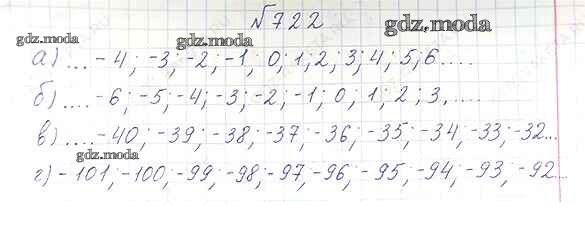 №722
gdz.moda
gdz.moda
gdz.moda
а) ... -4; -3; -2; -1, 0; 1; 2; 3; 4; 5; 6....
б) .... -6; -5; -4; -3; -2; -1; 0; 1; 2; 3, ....
в) .... -40; -39; -38; -37; -36; -35; -34, -33; -32...
gdz.moda
г) -101; -100; -99; -98; -97; -96; -95, -94, -93, -92...